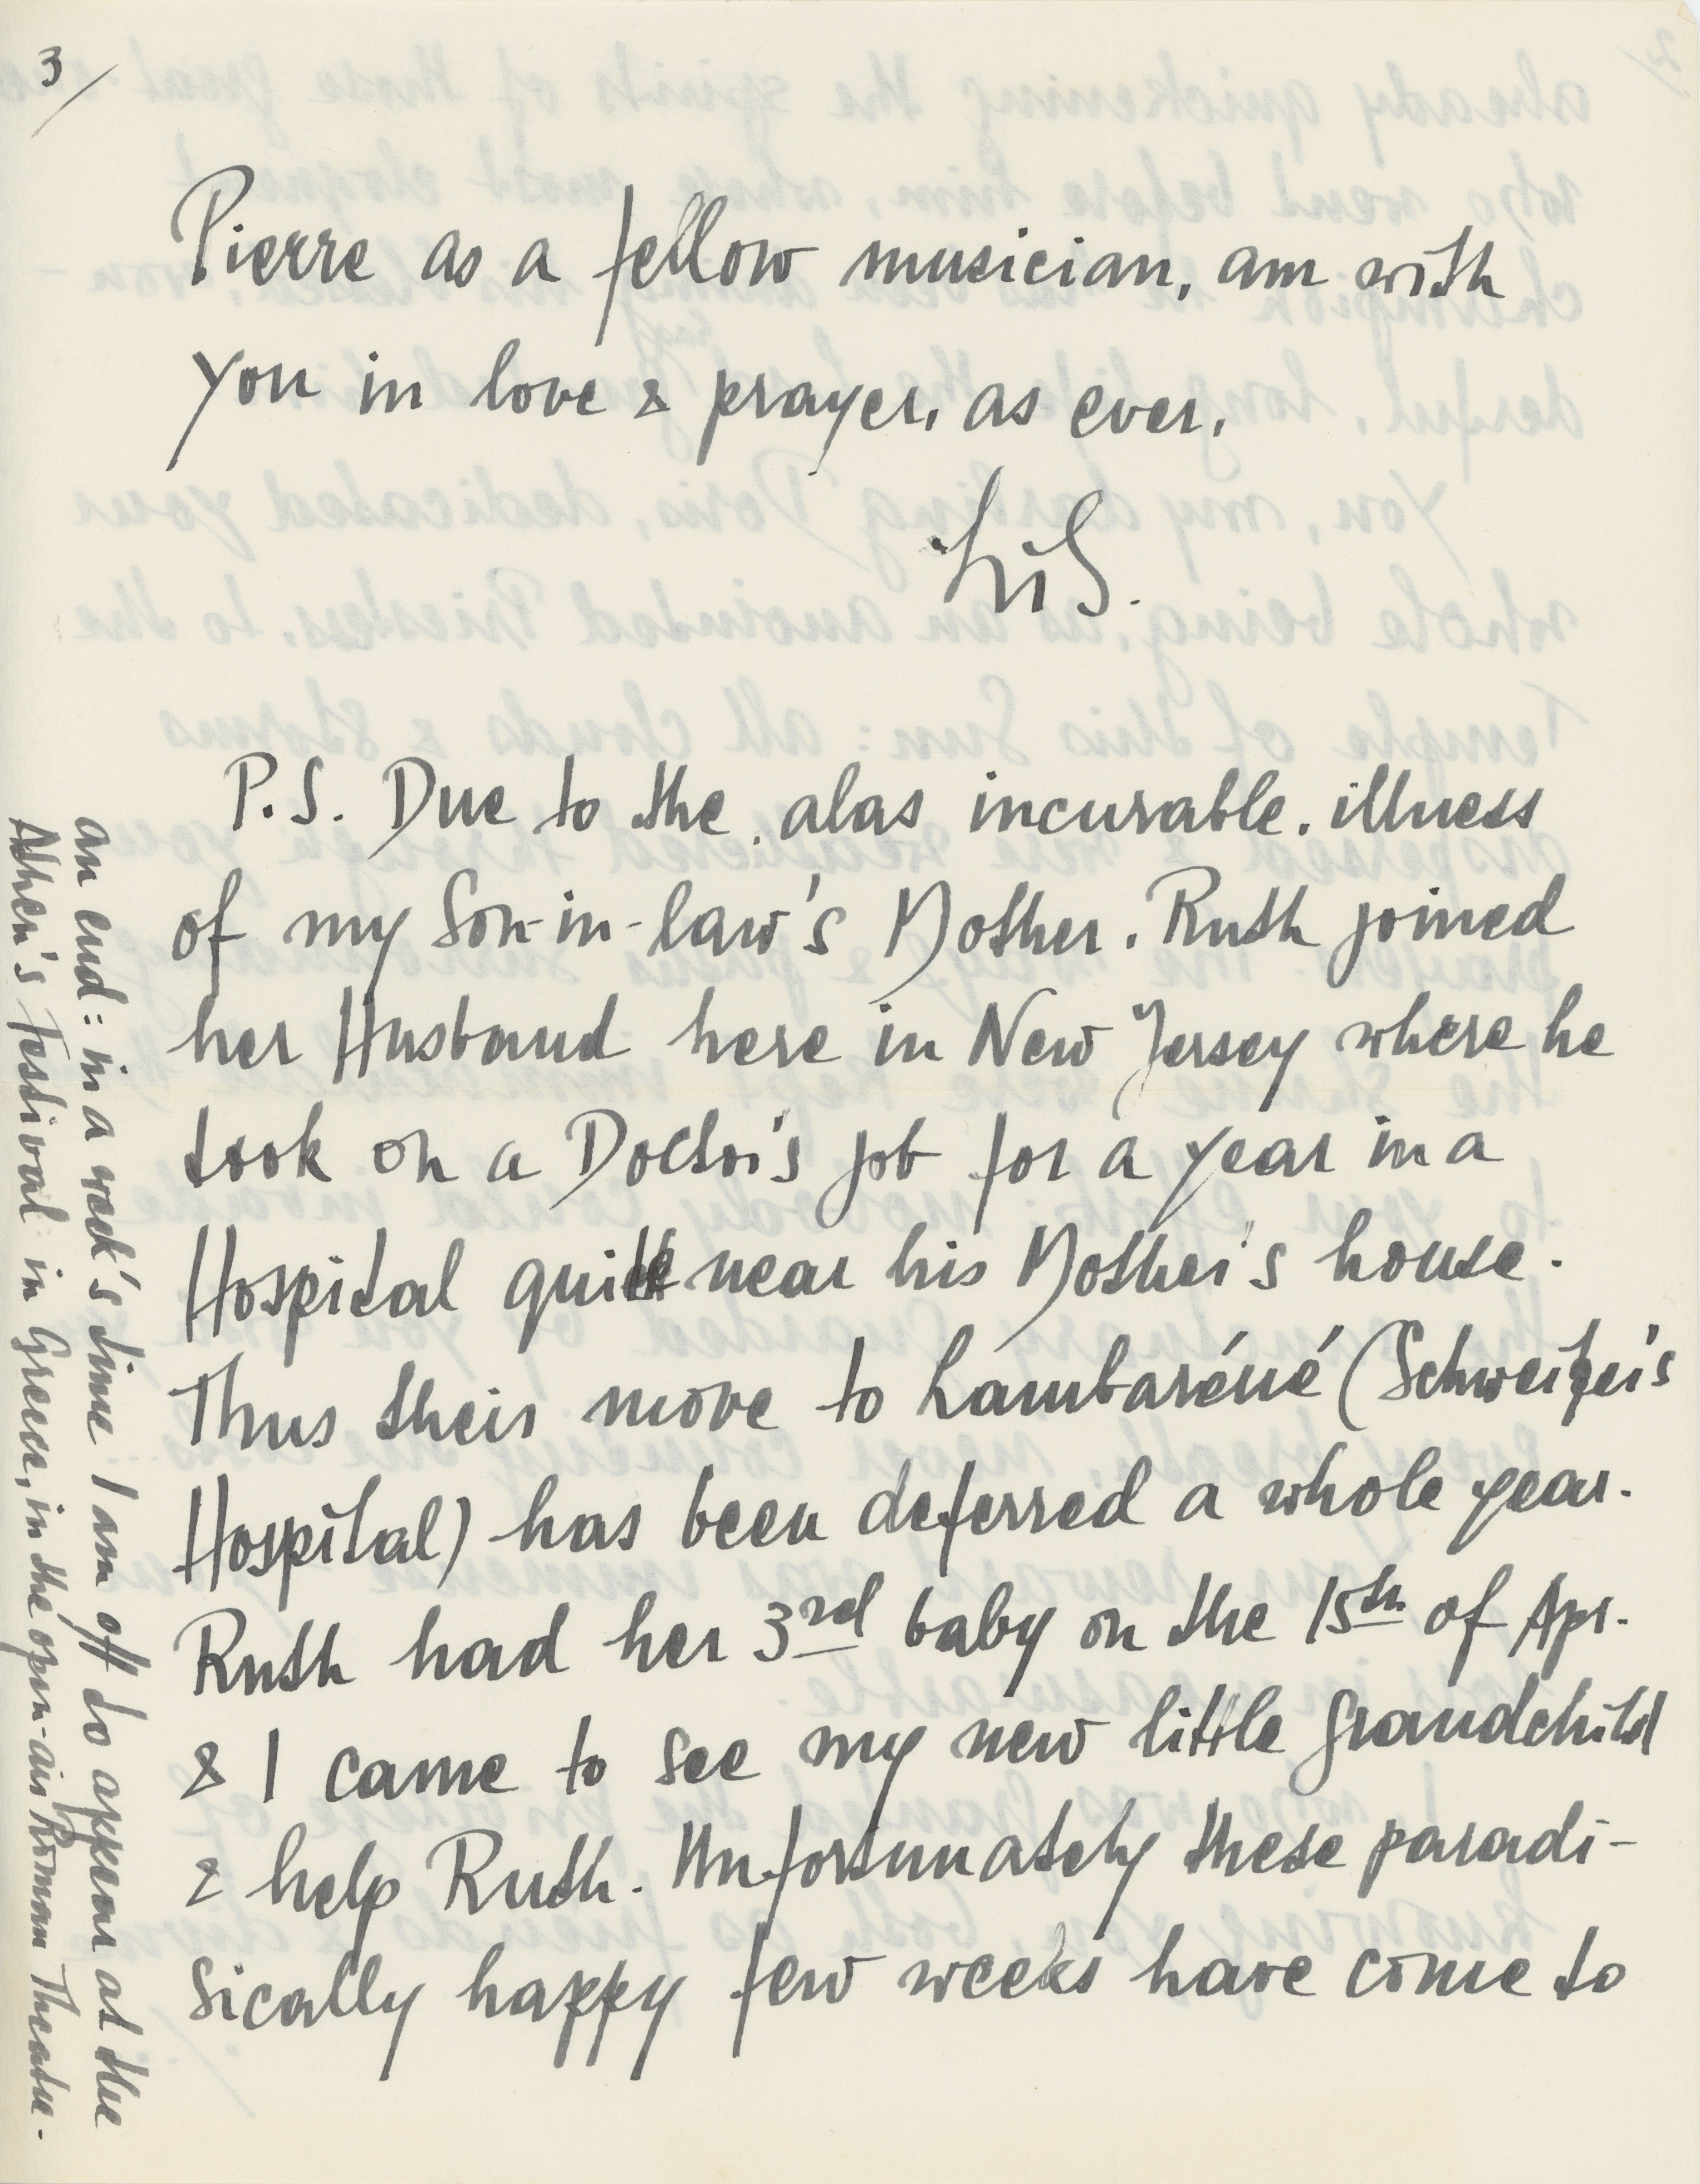 3/
Pierre as a fellow musician, am with
you in love & prayer, as ever,
Lili.
P.S. Due to the, alas incurable, illness
of my Son-in-law's Mother, Ruth joined
her Husband here in New Jersey where he
took on a Doctor's job for a year in a
Hospital quite near his Mother's house.
Thus their move to Lambaréné (Schweitzer's
Hospital) has been deferred a whole year.
Ruth had her 3rd baby on the 15th of Apr.
& I came to see my new little grandchild
& help Ruth. Unfortunately these paradi-
sically happy few weeks have come to
an end: in a week's time I am off to appear at the
Athen's Festival in Greece, in the open-air Roman Theatre.